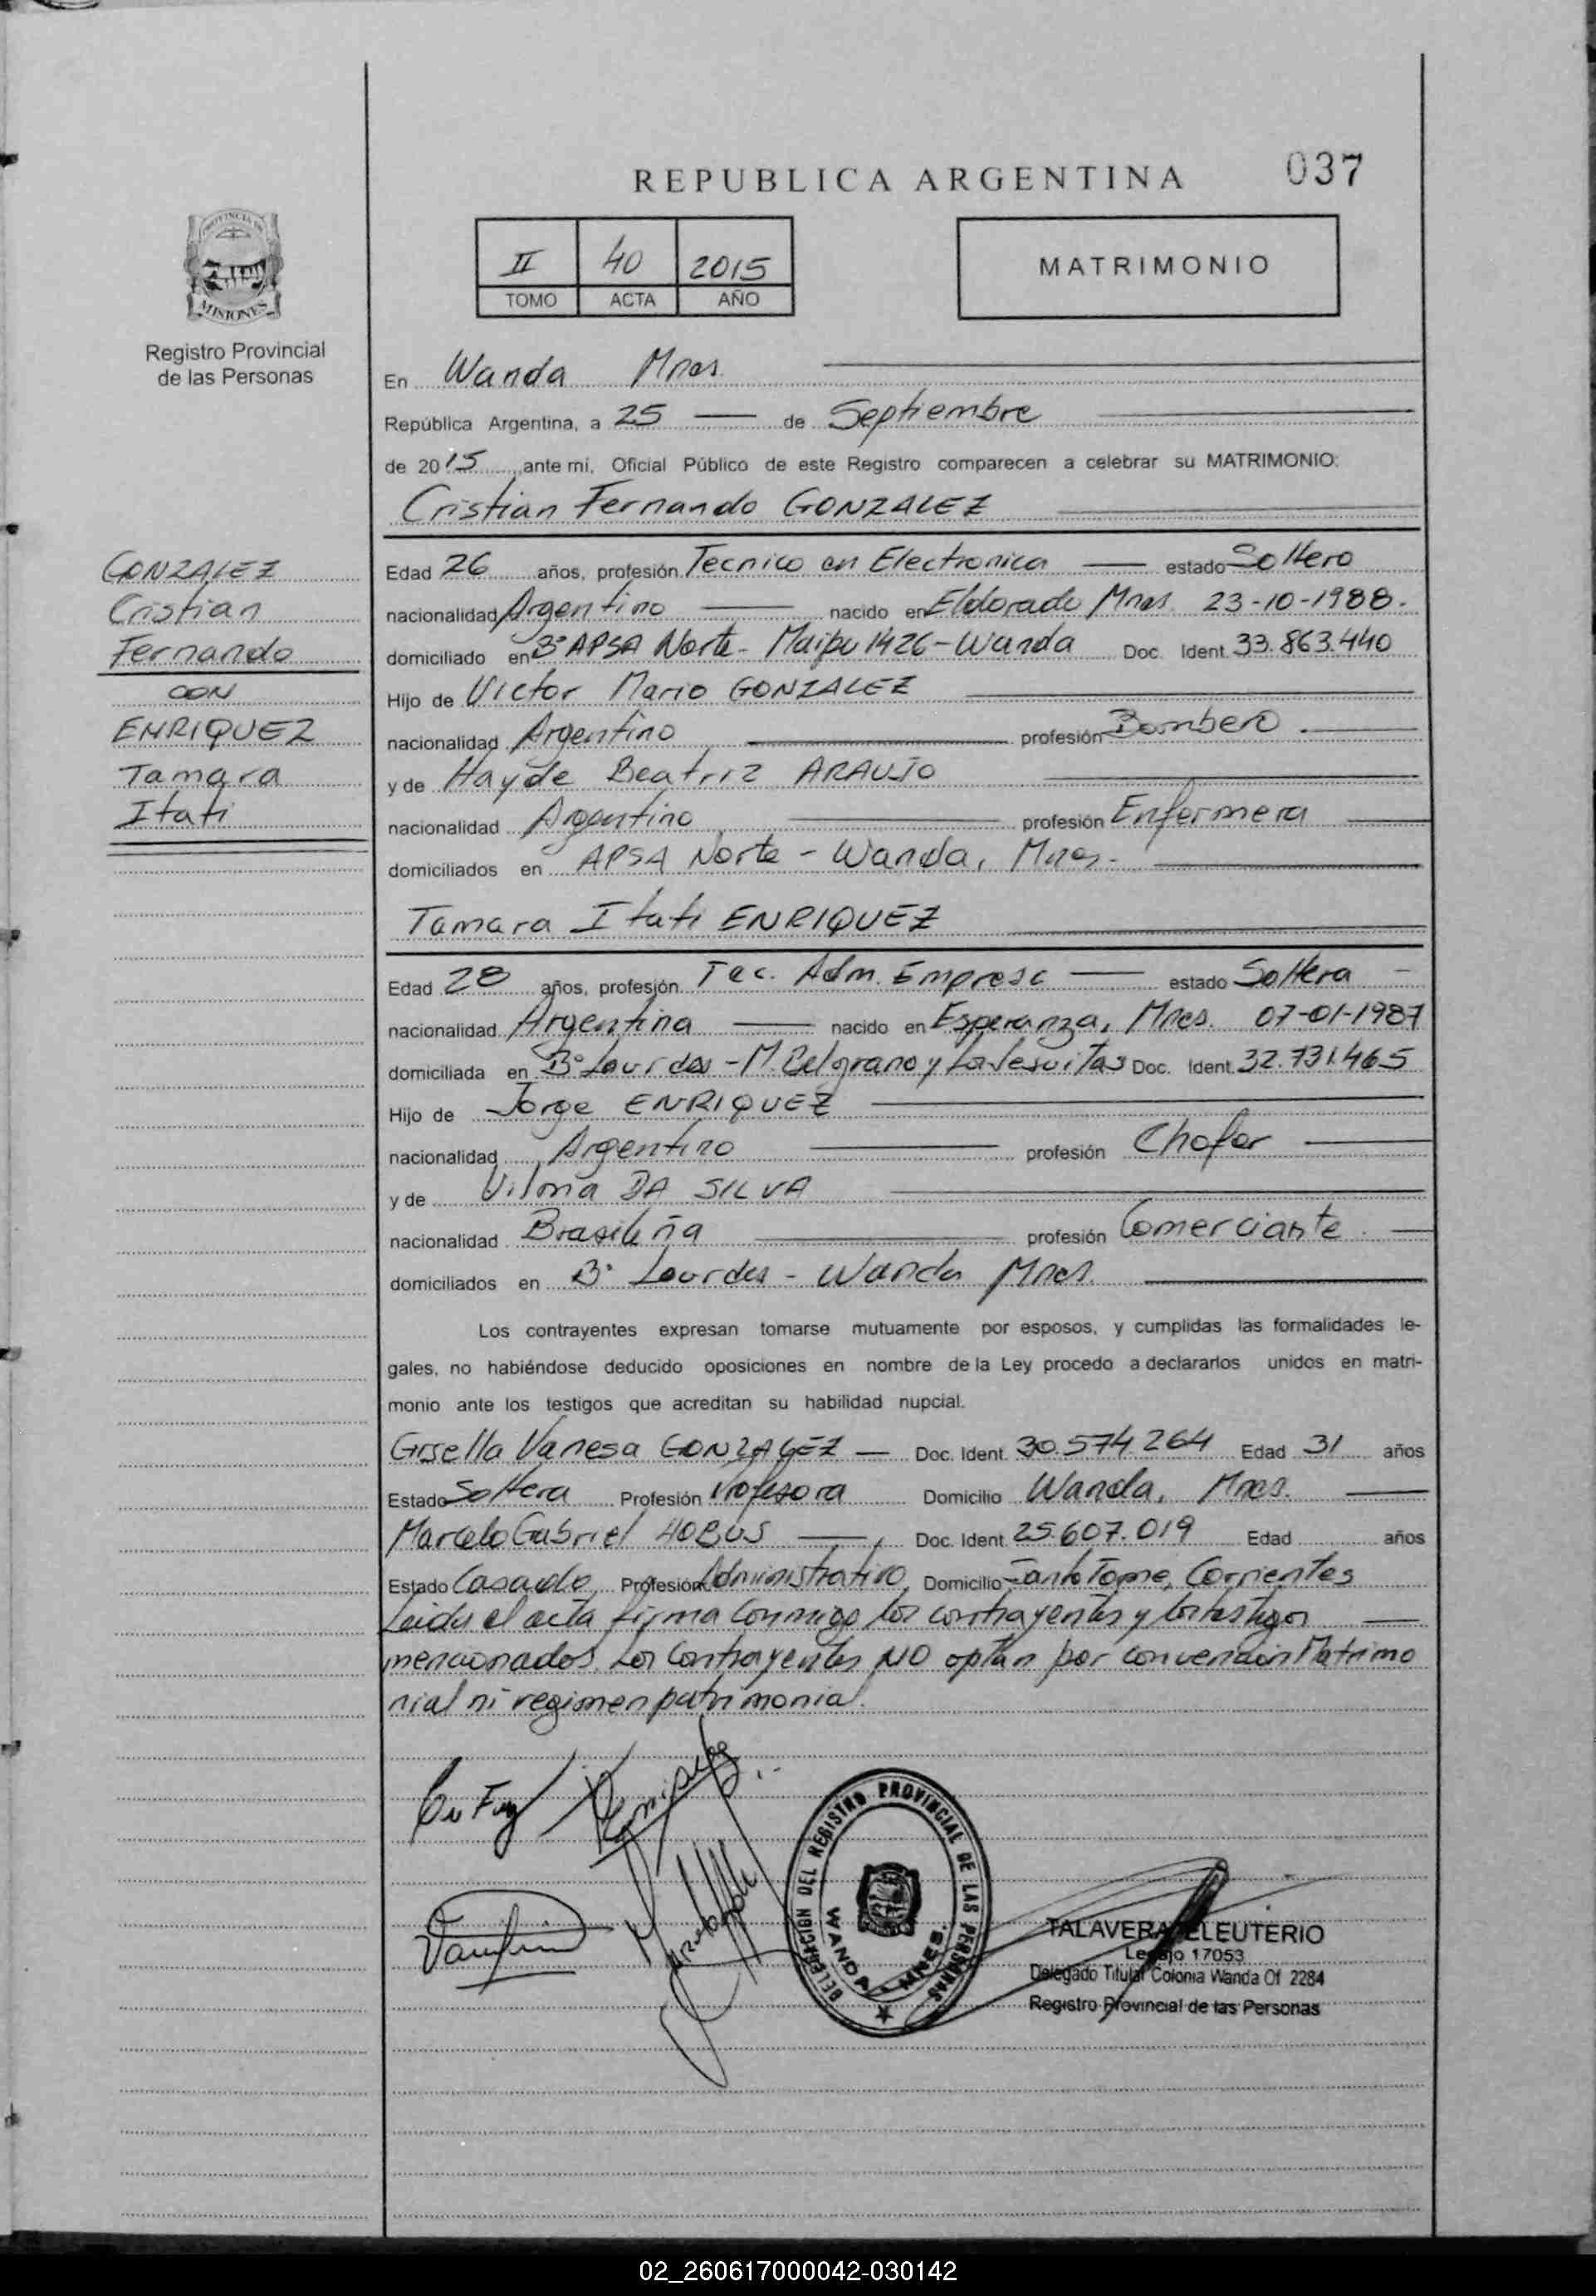 037
REPUBLICA ARGENTINA
PROVINCIA DE
MISIONES
Registro Provincial
de las Personas
II 40 2015
TOMO ACTA AÑO
MATRIMONIO
En Wanda Mnes.
República Argentina, a 25 de Septiembre
de 2015, ante mí, Oficial Público de este Registro comparecen a celebrar su MATRIMONIO:
Cristian Fernando GONZALEZ
GONZALEZ
Cristian
Fernando
CON
ENRIQUEZ
Tamara
Itati
Edad 26 años, profesión Tecnico en Electronica estado Soltero
nacionalidad Argentino nacido en Eldorado Mnes. 23-10-1988.
domiciliado en B° APSA Norte - Maipu 1426 - Wanda Doc. Ident. 33.863.440
Hijo de Victor Mario GONZALEZ
nacionalidad Argentino profesión Bombero
y de Hayde Beatriz ARAUJO
nacionalidad Argentino profesión Enfermera
domiciliados en APSA Norte - Wanda, Mnes.
Tamara Itati ENRIQUEZ
Edad 28 años, profesión Tec. Adm. Empresa estado Soltera
nacionalidad Argentina nacido en Esperanza, Mnes. 07-01-1987
domiciliada en B° Lourdes - M. Belgrano y Los Jesuitas Doc. Ident. 32.731.465
Hijo de Jorge ENRIQUEZ
nacionalidad Argentino profesión Chofer
y de Vilma DA SILVA
nacionalidad Brasileña profesión Comerciante
domiciliados en B° Lourdes - Wanda Mnes.
Los contrayentes expresan tomarse mutuamente por esposos, y cumplidas las formalidades le-
gales, no habiéndose deducido oposiciones en nombre de la Ley procedo a declararlos unidos en matri-
monio ante los testigos que acreditan su habilidad nupcial.
Grsella Vanesa GONZALEZ Doc. Ident. 30.574.264 Edad 31 años
Estado Soltera Profesión Profesora Domicilio Wanda, Mnes.
Marcelo Gabriel HOBUS Doc. Ident. 25.607.019 Edad años
Estado Casado Profesión Administrativo Domicilio Santo Tome, Corrientes
Leida el acta firma conmigo los contrayentes y los testigos
mencionados. Los contrayentes NO optan por convencion Matrimo
nial ni regimen patrimonial.
DELEGACION DEL REGISTRO PROVINCIAL DE LAS PERSONAS
WANDA MNES.
TALAVERA ELEUTERIO
Legajo 17053
Delegado Titular Colonia Wanda Of 2284
Registro Provincial de las Personas
02_260617000042-030142